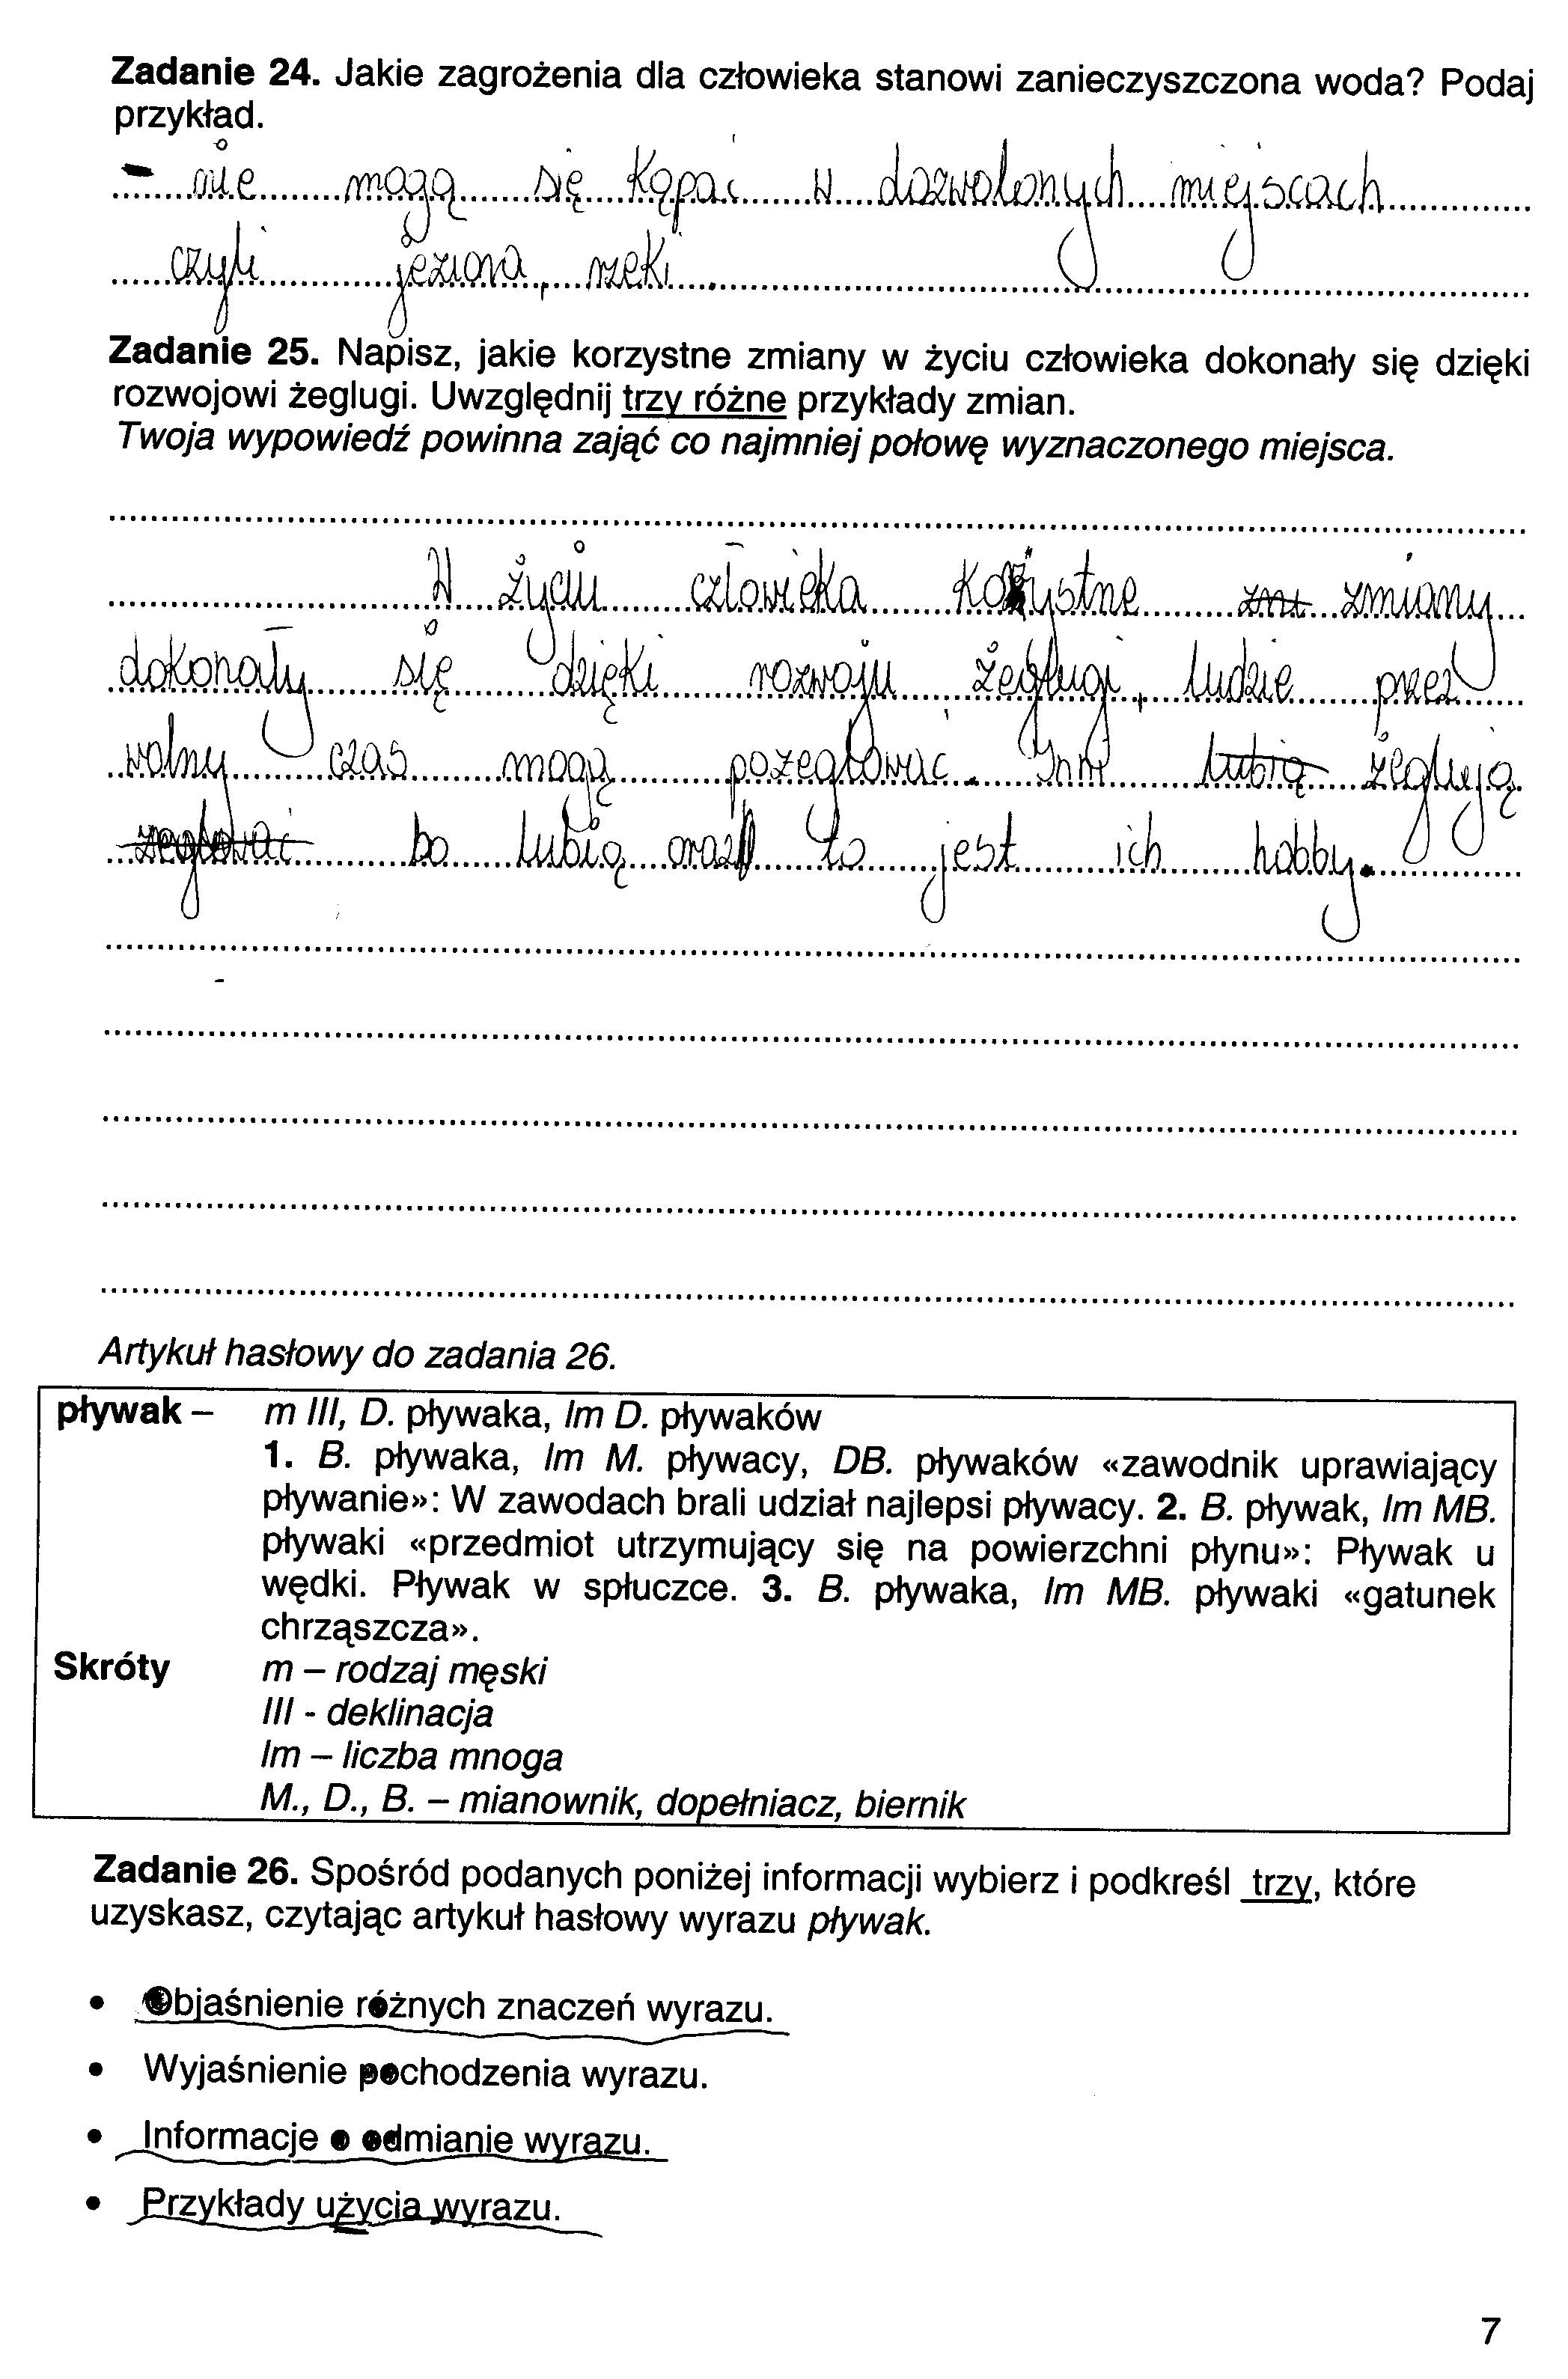 Zadanie 24. Jakie zagrożenia dla człowieka stanowi zanieczyszczona woda? Podaj
przykład.
- nie mogą się kąpać w dozwolonych miejscach
czyli jeziora, rzeki.
Zadanie 25. Napisz, jakie korzystne zmiany w życiu człowieka dokonały się dzięki
rozwojowi żeglugi. Uwzględnij trzy różne przykłady zmian.
Twoja wypowiedź powinna zająć co najmniej połowę wyznaczonego miejsca.
W życiu człowieka kożystne zmi zmiany
dokonały się dzięki rozwoju żeglugi, ludzie przez
wolny czas mogą pożegłować. Inni lubią żeglują
żegłować bo lubią oraz to jest ich hobby.
Artykuł hasłowy do zadania 26.
pływak – m III, D. pływaka, lm D. pływaków
1. B. pływaka, lm M. pływacy, DB. pływaków «zawodnik uprawiający
pływanie»: W zawodach brali udział najlepsi pływacy. 2. B. pływak, lm MB.
pływaki «przedmiot utrzymujący się na powierzchni płynu»: Pływak u
wędki. Pływak w spłuczce. 3. B. pływaka, lm MB. pływaki «gatunek
chrząszcza».
Skróty m – rodzaj męski
III - deklinacja
lm – liczba mnoga
M., D., B. – mianownik, dopełniacz, biernik
Zadanie 26. Spośród podanych poniżej informacji wybierz i podkreśl trzy, które
uzyskasz, czytając artykuł hasłowy wyrazu pływak.
• Objaśnienie różnych znaczeń wyrazu.
• Wyjaśnienie pochodzenia wyrazu.
• Informacje o odmianie wyrazu.
• Przykłady użycia wyrazu.
7